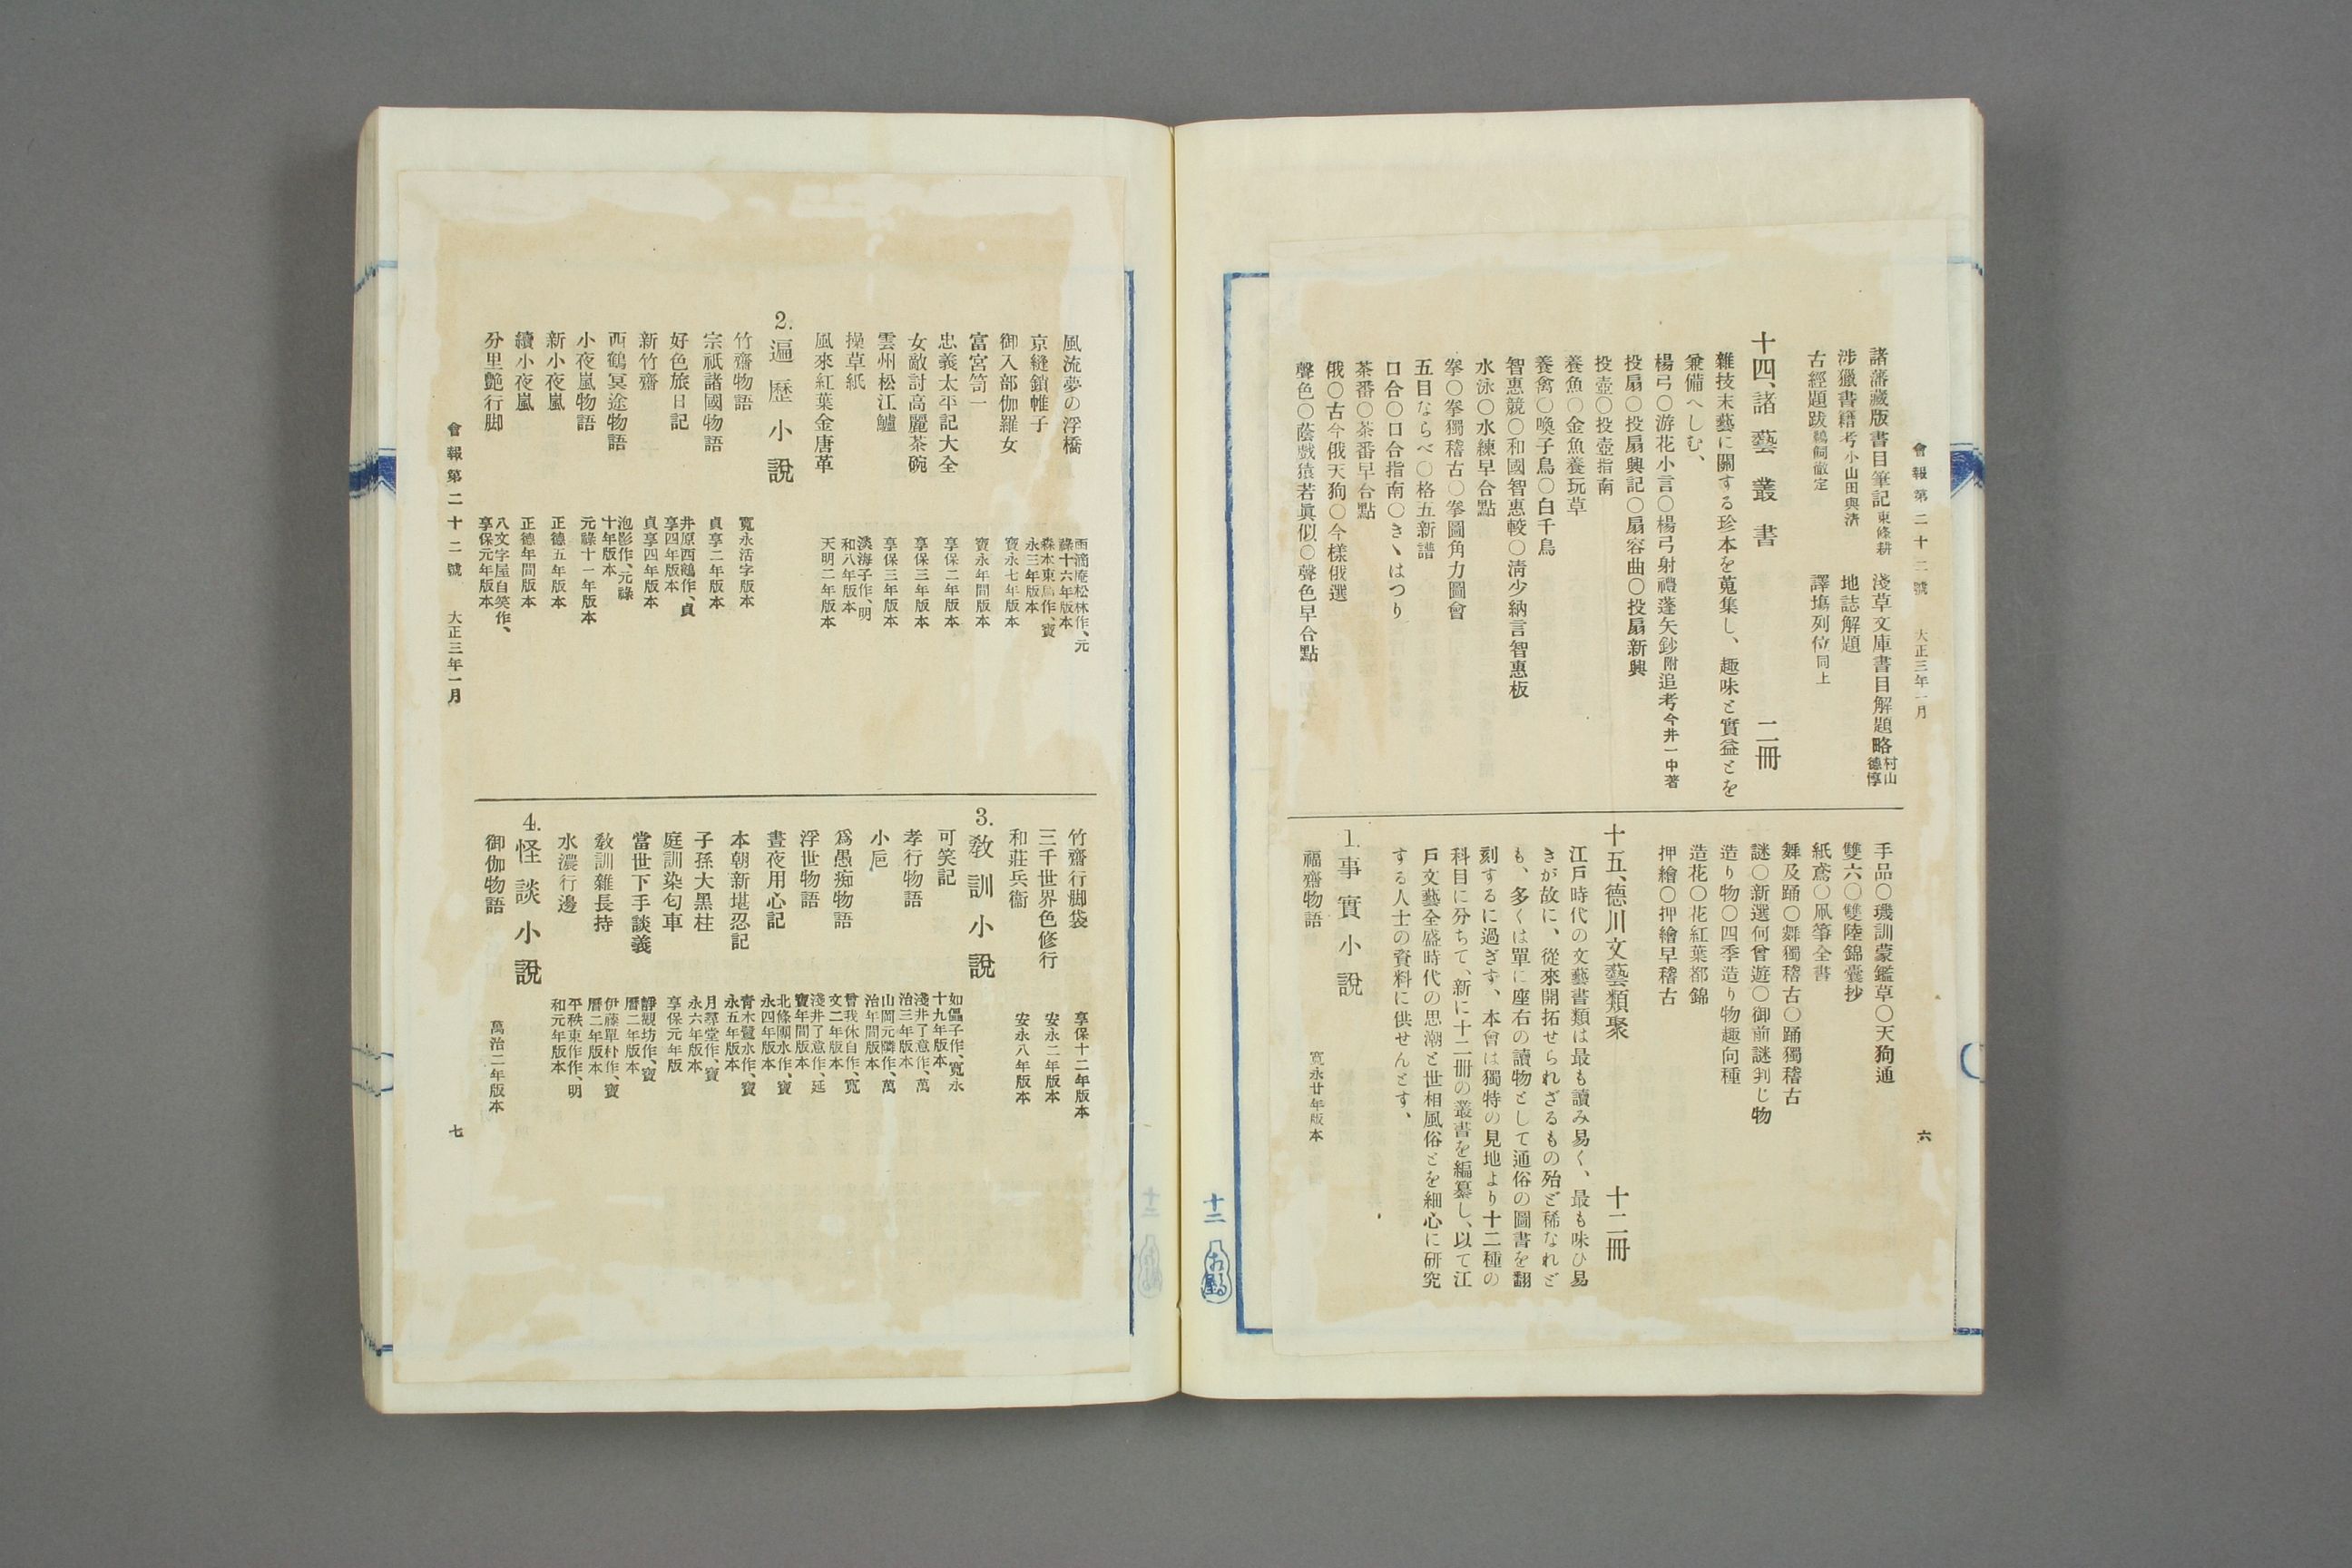 會報第二十二號 大正三年一月 六
諸藩藏版書目筆記 東條耕 淺草文庫書目解題略 村山德惇
涉獵書籍考 小山田與淸 地誌解題
古經題跋 鵜飼徹定 譯塲列位 同上
十四、諸藝叢書 二冊
雜技末藝に關する珍本を蒐集し、趣味と實益とを
兼備へしむ、
楊弓○游花小言○楊弓射禮蓬矢鈔附追考 今井一中著
投扇○投扇興記○扇容曲○投扇新興
投壺○投壺指南
養魚○金魚養玩草
養禽○喚子鳥○白千鳥
智惠競○和國智惠較○淸少納言智惠板
水泳○水練早合點
拳○拳獨稽古○拳圖角力圖會
五目ならべ○格五新譜
口合○口合指南○きゝはつり
茶番○茶番早合點
俄○古今俄天狗○今樣俄選
聲色○蔭戲猿若眞似○聲色早合點
手品○璣訓蒙鑑草○天狗通
雙六○雙陸錦囊抄
紙鳶○凧筝全書
舞及踊○舞獨稽古○踊獨稽古
謎○新選何曾遊○御前謎判じ物
造り物○四季造り物趣向種
造花○花紅葉都錦
押繪○押繪早稽古
十五、德川文藝類聚 十二冊
江戶時代の文藝書類は最も讀み易く、最も味ひ易
きが故に、從來開拓せられざるもの殆ど稀なれど
も、多くは單に座右の讀物として通俗の圖書を翻
刻するに過ぎず、本會は獨特の見地より十二種の
科目に分ちて、新に十二冊の叢書を編纂し、以て江
戶文藝全盛時代の思潮と世相風俗とを細心に硏究
する人士の資料に供せんとす、
1. 事實小說
福齋物語 寬永廿年版本
十二
風流夢の浮橋 雨滴庵松林作、元祿十六年版本
京縫鎖帷子 森本東烏作、寶永三年版本
御入部伽羅女 寶永七年版本
富宮笥一 寶永年間版本
忠義太平記大全 享保二年版本
女敵討高麗茶碗 享保三年版本
雲州松江鱸 享保三年版本
操草紙 淡海子作、明和八年版本
風來紅葉金唐革 天明二年版本
2. 遍歷小說
竹齋物語 寬永活字版本
宗祇諸國物語 貞享二年版本
好色旅日記 井原西鶴作、貞享四年版本
新竹齋 貞享四年版本
西鶴冥途物語 泡影作、元祿十年版本
小夜嵐物語 元祿十一年版本
新小夜嵐 正德五年版本
續小夜嵐 正德年間版本
分里艷行脚 八文字屋自笑作、享保元年版本
竹齋行脚袋 享保十二年版本
三千世界色修行 安永二年版本
和莊兵衞 安永八年版本
3. 敎訓小說
可笑記 如儡子作、寬永十九年版本
孝行物語 淺井了意作、萬治三年版本
小巵 山岡元隣作、萬治年間版本
爲愚痴物語 曾我休自作、寬文二年版本
浮世物語 淺井了意作、延寶年間版本
晝夜用心記 北條團水作、寶永四年版本
本朝新堪忍記 靑木鷺水作、寶永五年版本
子孫大黑柱 月尋堂作、寶永六年版本
庭訓染匂車 享保元年版
當世下手談義 靜觀坊作、寶曆二年版本
敎訓雜長持 伊藤單朴作、寶曆二年版本
水濃行邊 平秩東作作、明和元年版本
4. 怪談小說
御伽物語 萬治二年版本
會報第二十二號 大正三年一月 七